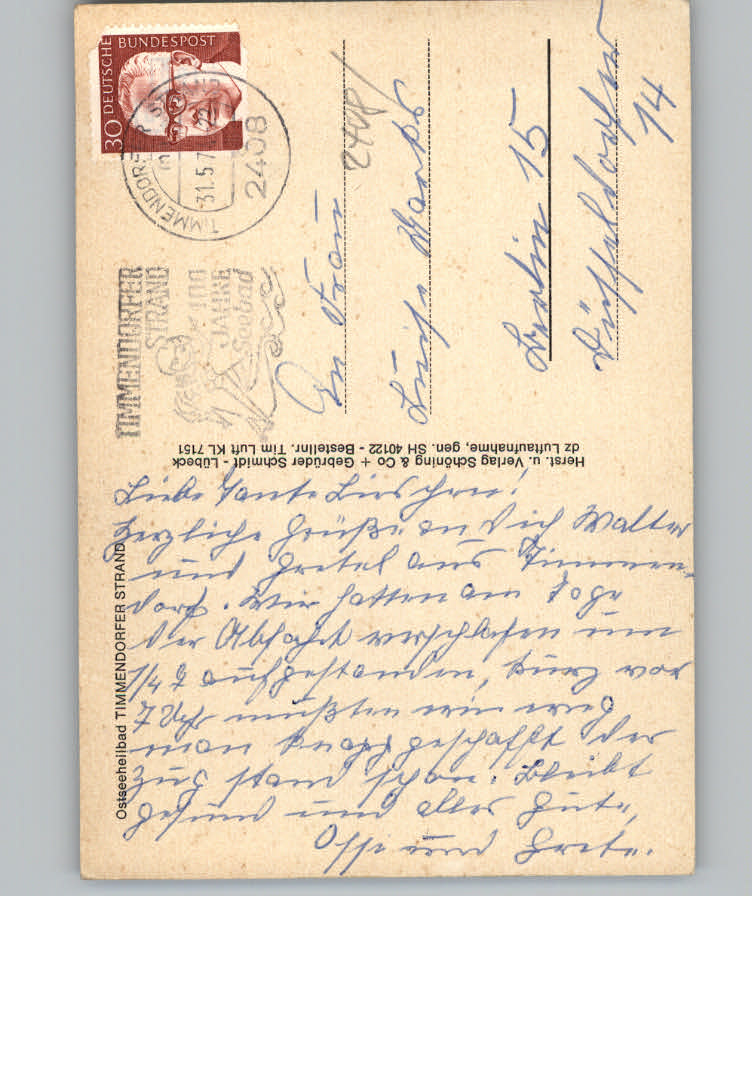 Liebe Tante Lieschen!
Herzliche Grüße an Dich Walter
und Gretel aus Timmen-
dorf. Wir hatten am Tage
der Abfahrt verschlafen um
1/4 7 aufgestanden, kurz vor
7 Uhr mußten wir weg
man knapp geschafft der
Zug stand schon. Bleibt
gesund und alles Gute,
und Grete.
Ostseeheilbad TIMMENDORFER STRAND
Herst. u. Verlag Schöning & Co + Gebrüder Schmidt - Lübeck
dz Luftaufnahme, gen. SH 40122 - Bestellnr. Tim Luft KL 7151
30 DEUTSCHE BUNDESPOST
TIMMENDORFER
31.5.7
2408
TIMMENDORFER
STRAND
100
JAHRE
Seebad
2408
An Frau
Luise
Berlin 15
Düsseldorfer
14